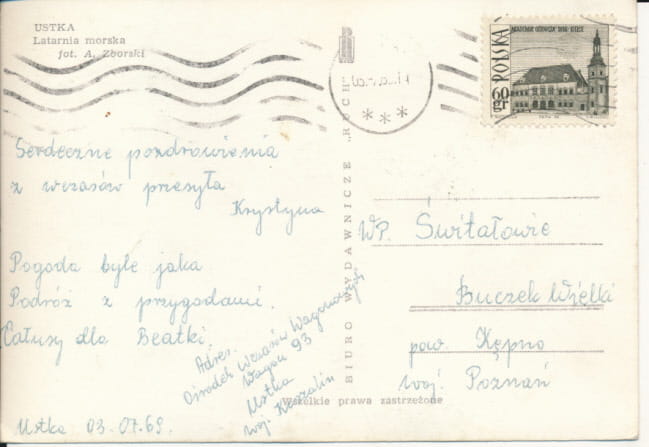 USTKA
Latarnia morska
fot. A. Zborski
Serdeczne pozdrowienia
z wczasów przesyła
Krystyna
Pogoda byle jaka
Podróż z przygodami.
Całusy dla Beatki.
Ustka 03.07.69.
Adres.
Ośrodek Wczasów Wagonowych
Wagon 93
Ustka
woj. Koszalin
BIURO WYDAWNICZE „RUCH”
Wszelkie prawa zastrzeżone
POLSKA
60 gr
WP. Świtałowie
Buczek Wielki
pow. Kępno
woj. Poznań